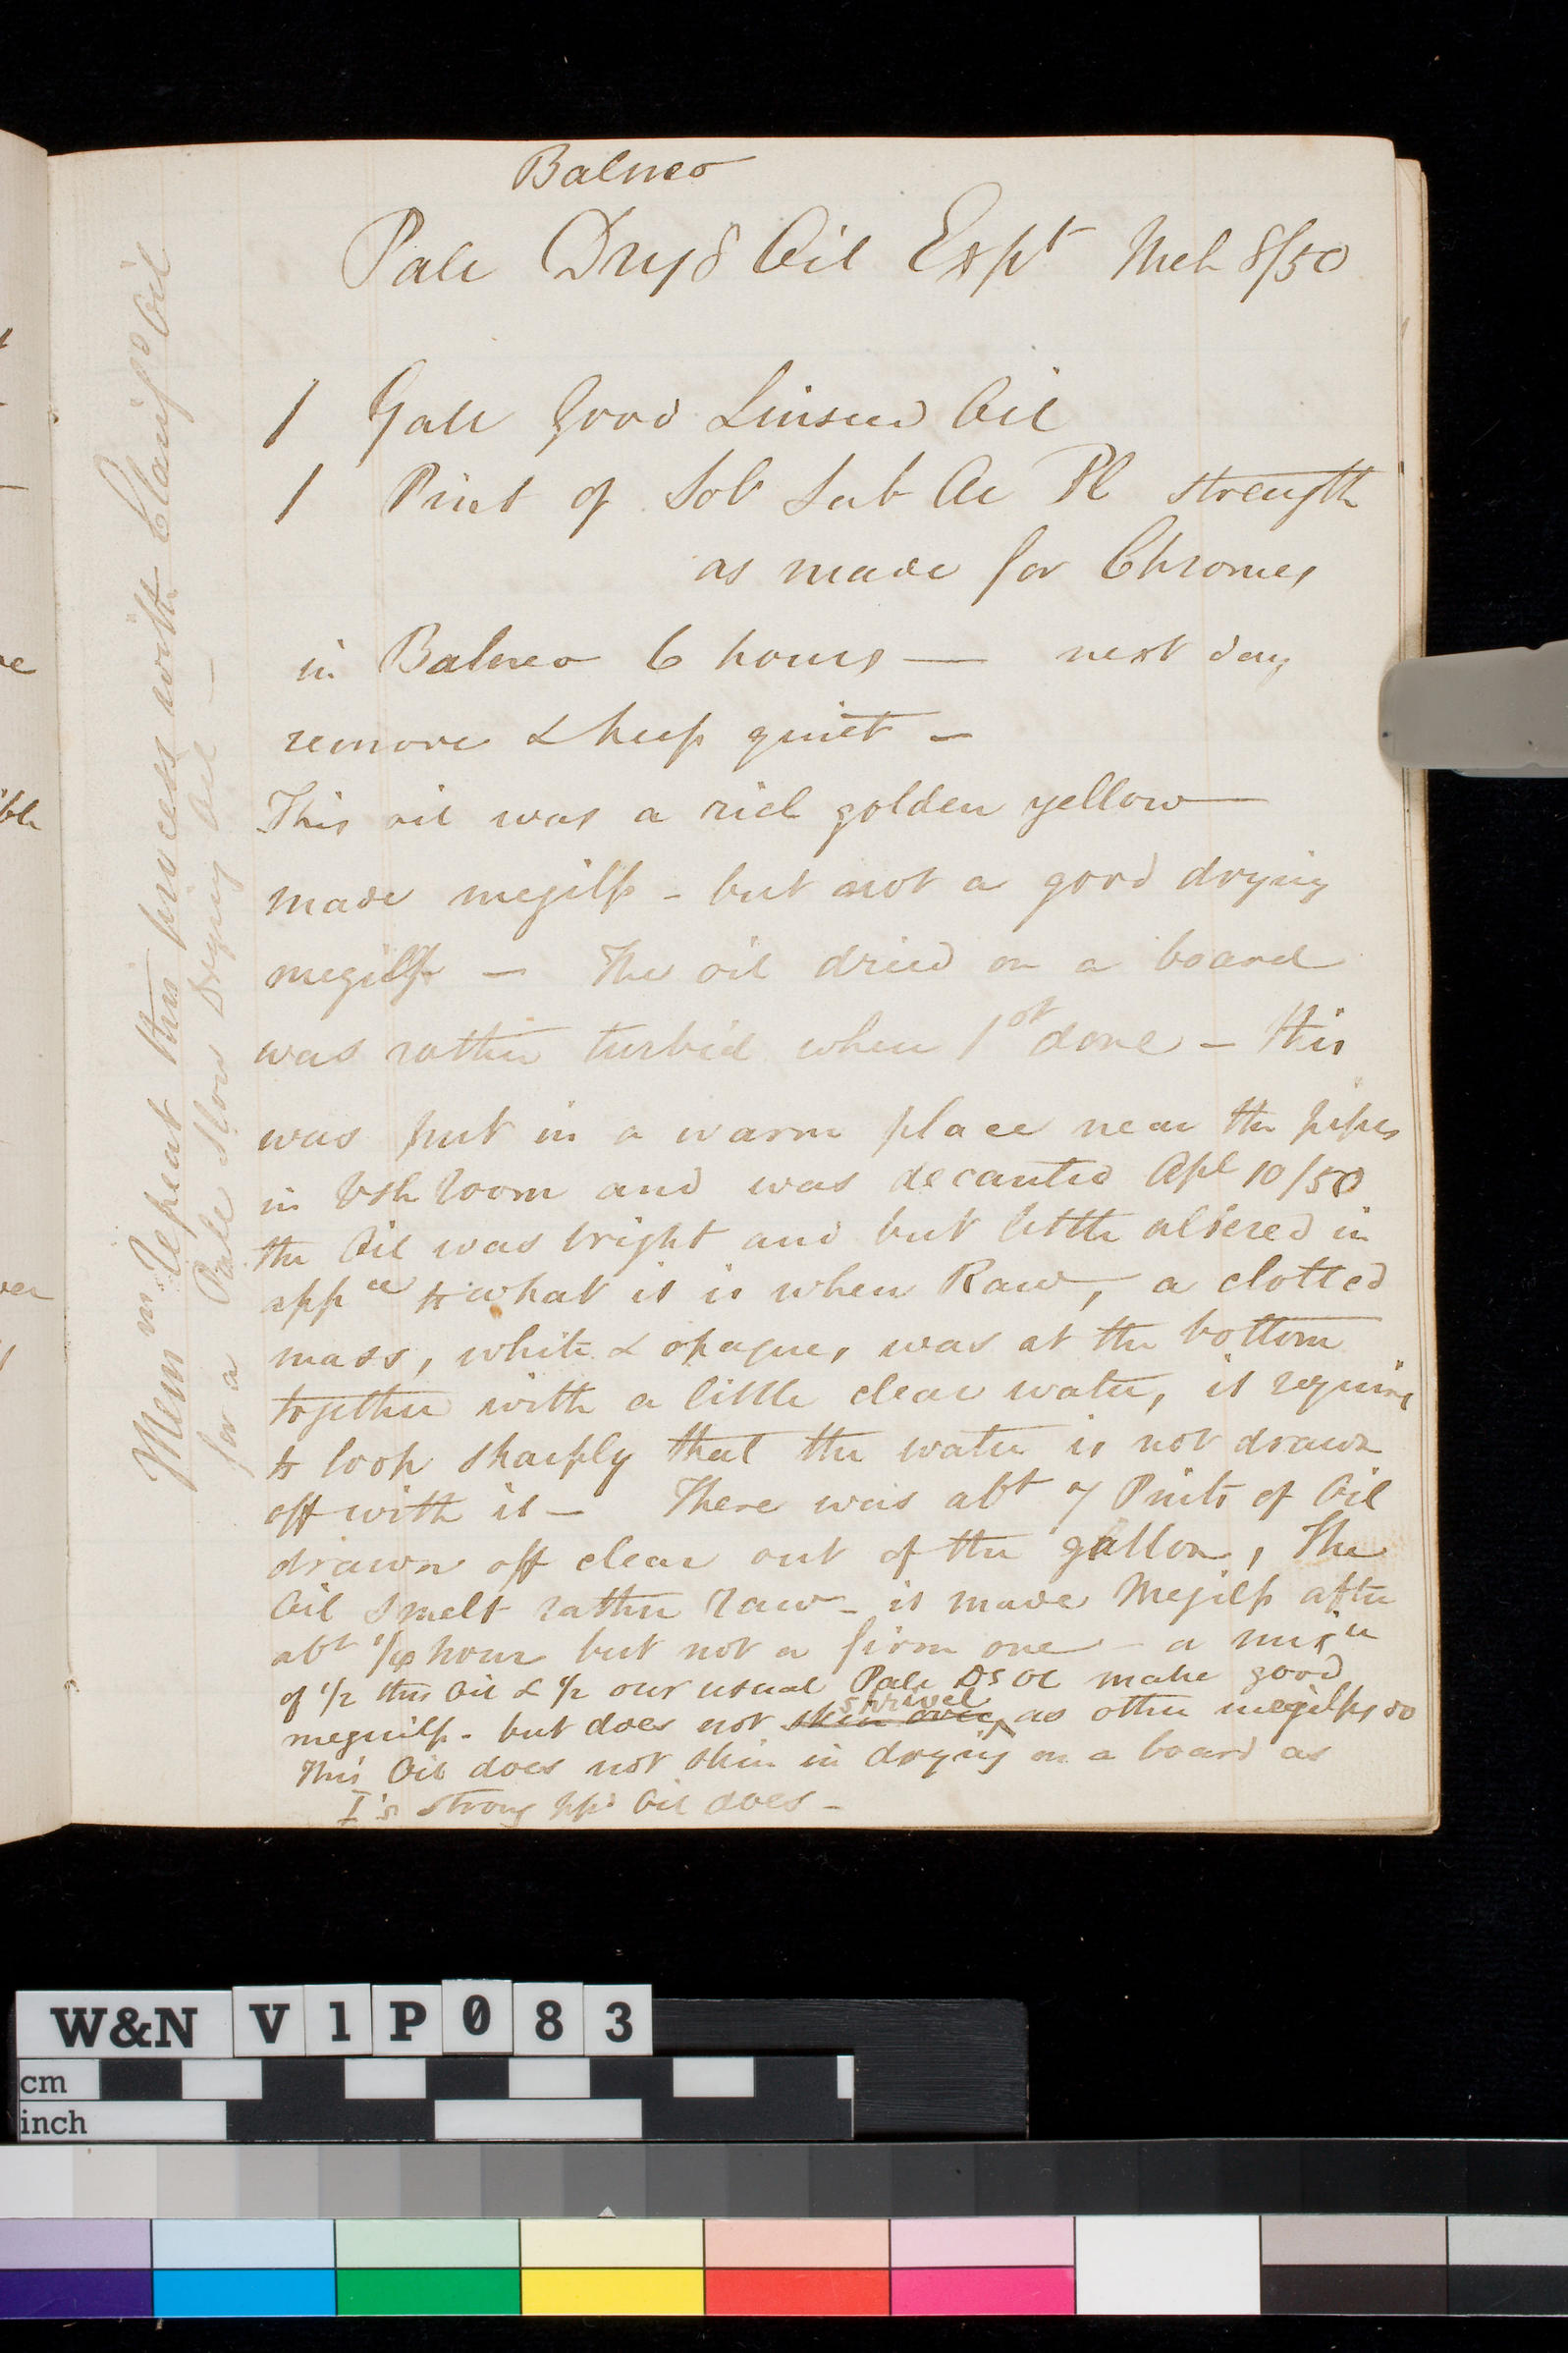 Balneo
Pale Dryg Oil Expt Mch 8/50
1 Gall Good Linseed Oil
1 Pint of Sol Sub Ac Pl strength
as made for Chromes
in Balneo 6 hours — next day
remove & keep quiet –
This oil was a rich golden yellow
made megilp – but not a good drying
megilp – The oil dried on a board
was rather turbid when 1st done – this
was put in a warm place near the pipes
in Vsh Room and was decanted Apl 10/50
the Oil was bright and but little altered in
appce to what it is when Raw, a clotted
mass, white & opaque, was at the bottom
together with a little clear water, it requires
to look sharply that the water is not drawn
off with it – There was abt 7 Pints of Oil
drawn off clear out of the gallon, The
Oil smelt rather raw – it made Megilp after
abt hour but not a firm one – a mixre
of 1/2 this Oil & 1/2 our usual Pale Dg Ol make good
meguilp – but does not skin over shrivel as other megilps do
This Oil does not skin in drying on a board as
strong Oil does –
Mem m Repeat this process with Clarifd Oil
for a Pale Slow Drying Oil –
W&N V1P083
cm
inch